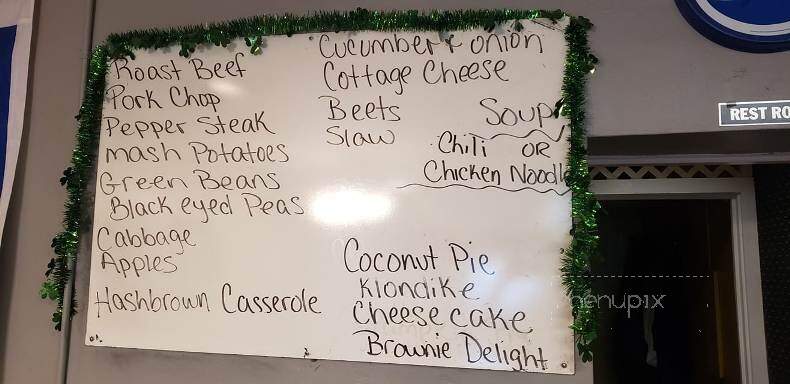 Roast Beef
Pork Chop
Pepper Steak
mash Potatoes
Green Beans
Black eyed Peas
Cabbage
Apples
Hashbrown Casserole
Cucumber & onion
Cottage Cheese
Beets
Slaw
Soup
Chili OR
Chicken Noodle
Coconut Pie
Klondike
Cheese cake
Brownie Delight
REST RO
menupix